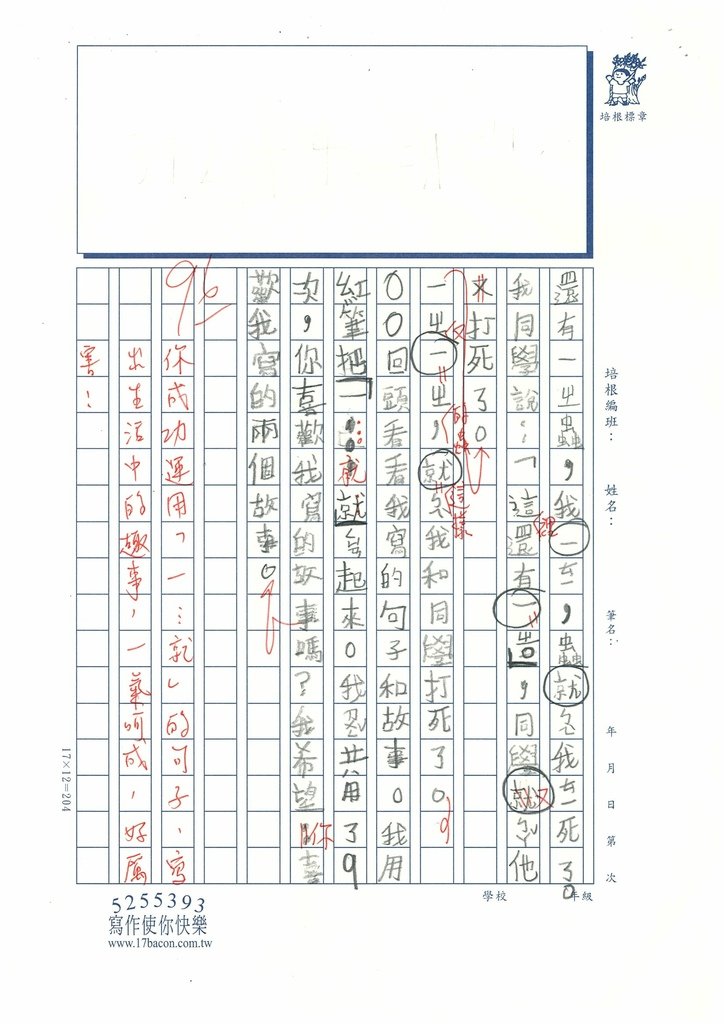 培根標章
培根編班：
姓名：
筆名：
年 月 日 第 次
學校
年級
還有一隻蟲，我一踩，蟲就被我踩死了。
我同學說：「這裡還有一隻。」，同學又就被他
打死了。
一隻又一隻的蟲，就這樣被我和同學打死了。
回頭看看我寫的句子和故事。我用
紅筆把「一……就」就圈起來。我總共用了9
次，你喜歡我寫的故事嗎？我希望你喜
歡我寫的兩個故事。
96
你成功運用「一…就」的句子，寫
出生活中的趣事，一氣呵成，好厲
害！
17×12=204
5255393
寫作使你快樂
www.17bacon.com.tw